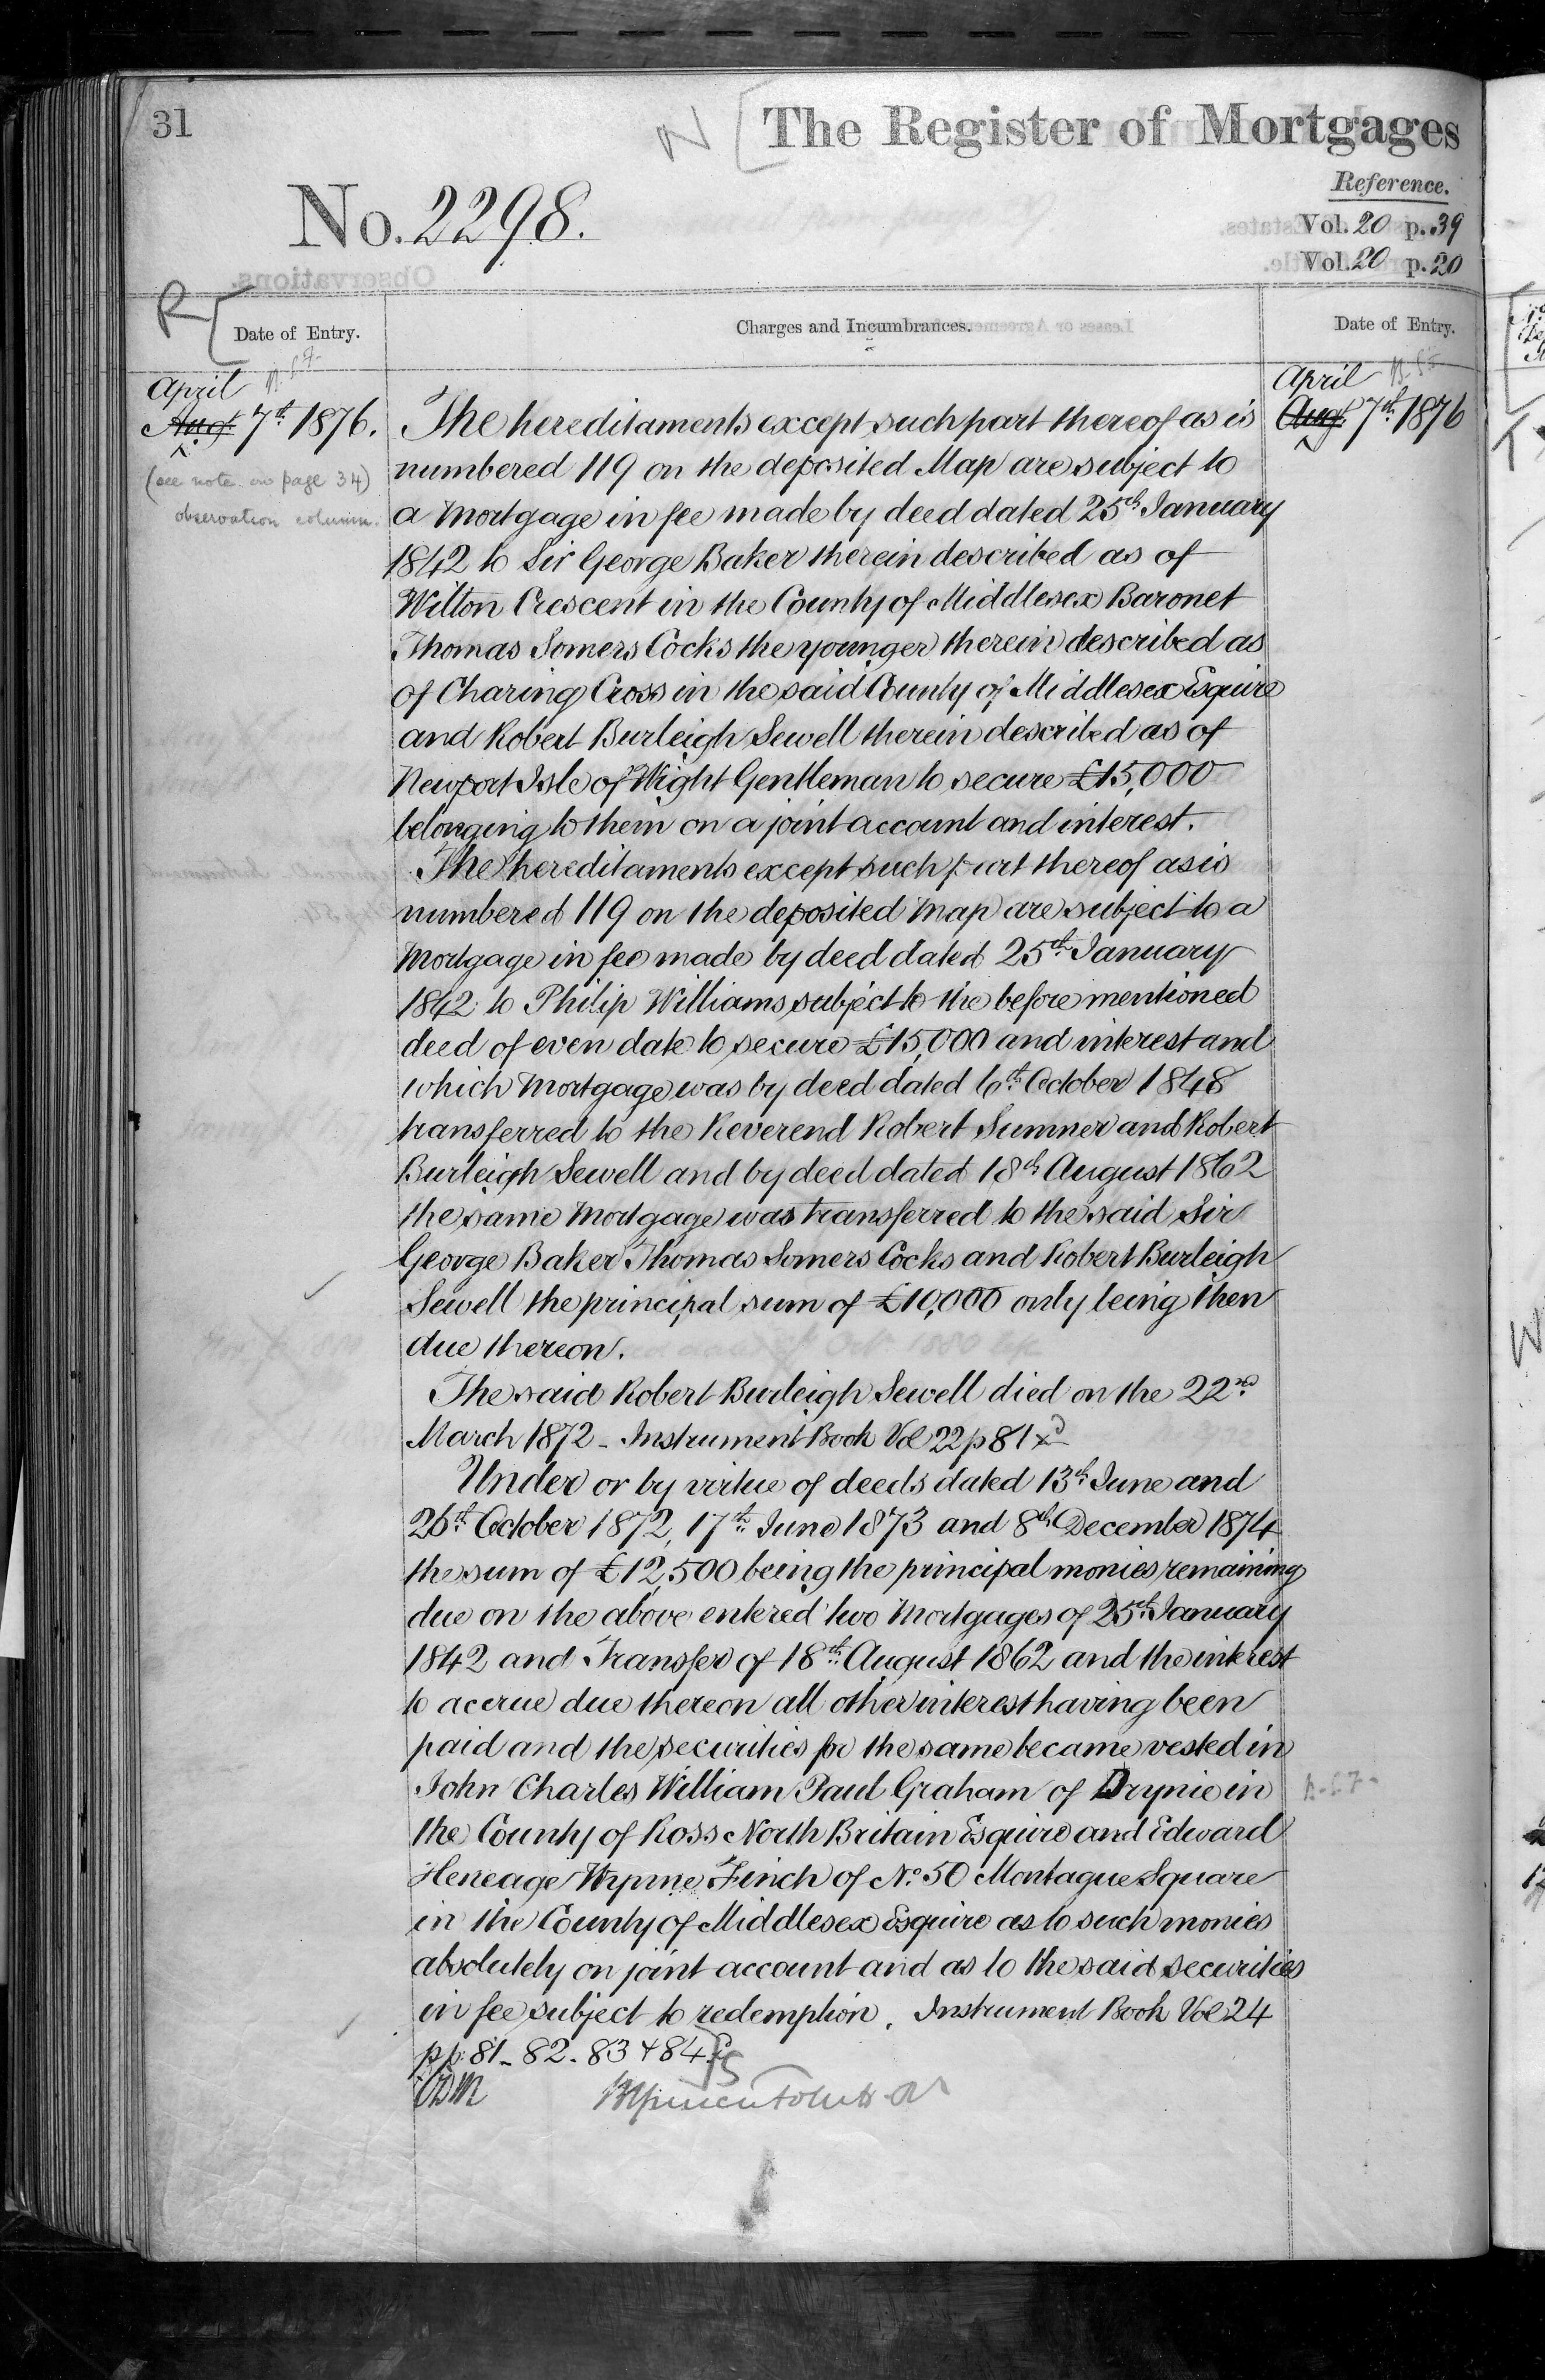 31
N [ The Register of Mortgages
Reference.
No. 2298.
Vol. 20 p. 39
Vol. 20 p. 20
R [ Date of Entry.
Charges and Incumbrances.
Date of Entry.
April
Aug. 7th 1876.
(see note on page 34)
observation column.
April
Aug. 7th 1876
The hereditaments except such part thereof as is
numbered 119 on the deposited Map are subject to
a Mortgage in fee made by deed dated 25th January
1842 to Sir George Baker therein described as of
Wilton Crescent in the County of Middlesex Baronet
Thomas Somers Cocks the younger therein described as
of Charing Cross in the said County of Middlesex Esquire
and Robert Burleigh Sewell therein described as of
Newport Isle of Wight Gentleman to secure £15,000
belonging to them on a joint account and interest.
The hereditaments except such part thereof as is
numbered 119 on the deposited Map are subject to a
Mortgage in fee made by deed dated 25th January
1842 to Philip Williams subject to the before mentioned
deed of even date to secure £15,000 and interest and
which Mortgage was by deed dated 6th October 1848
transferred to the Reverend Robert Sumner and Robert
Burleigh Sewell and by deed dated 18th August 1862
the same Mortgage was transferred to the said Sir
George Baker Thomas Somers Cocks and Robert Burleigh
Sewell the principal sum of £10,000 only being then
due thereon.
The said Robert Burleigh Sewell died on the 22nd
March 1872 - Instrument Book Vol 22 p 81
Under or by virtue of deeds dated 13th June and
26th October 1872, 17th June 1873 and 8th December 1874
the sum of £12,500 being the principal monies remaining
due on the above entered two Mortgages of 25th January
1842 and Transfer of 18th August 1862 and the interest
to accrue due thereon all other interest having been
paid and the securities for the same became vested in
John Charles William Paul Graham of Drynie in
the County of Ross North Britain Esquire and Edward
Heneage Wynne Finch of No. 50 Montague Square
in the County of Middlesex Esquire as to such monies
absolutely on joint account and as to the said securities
in fee subject to redemption. Instrument Book Vol 24
pp. 81 - 82 - 83 + 84